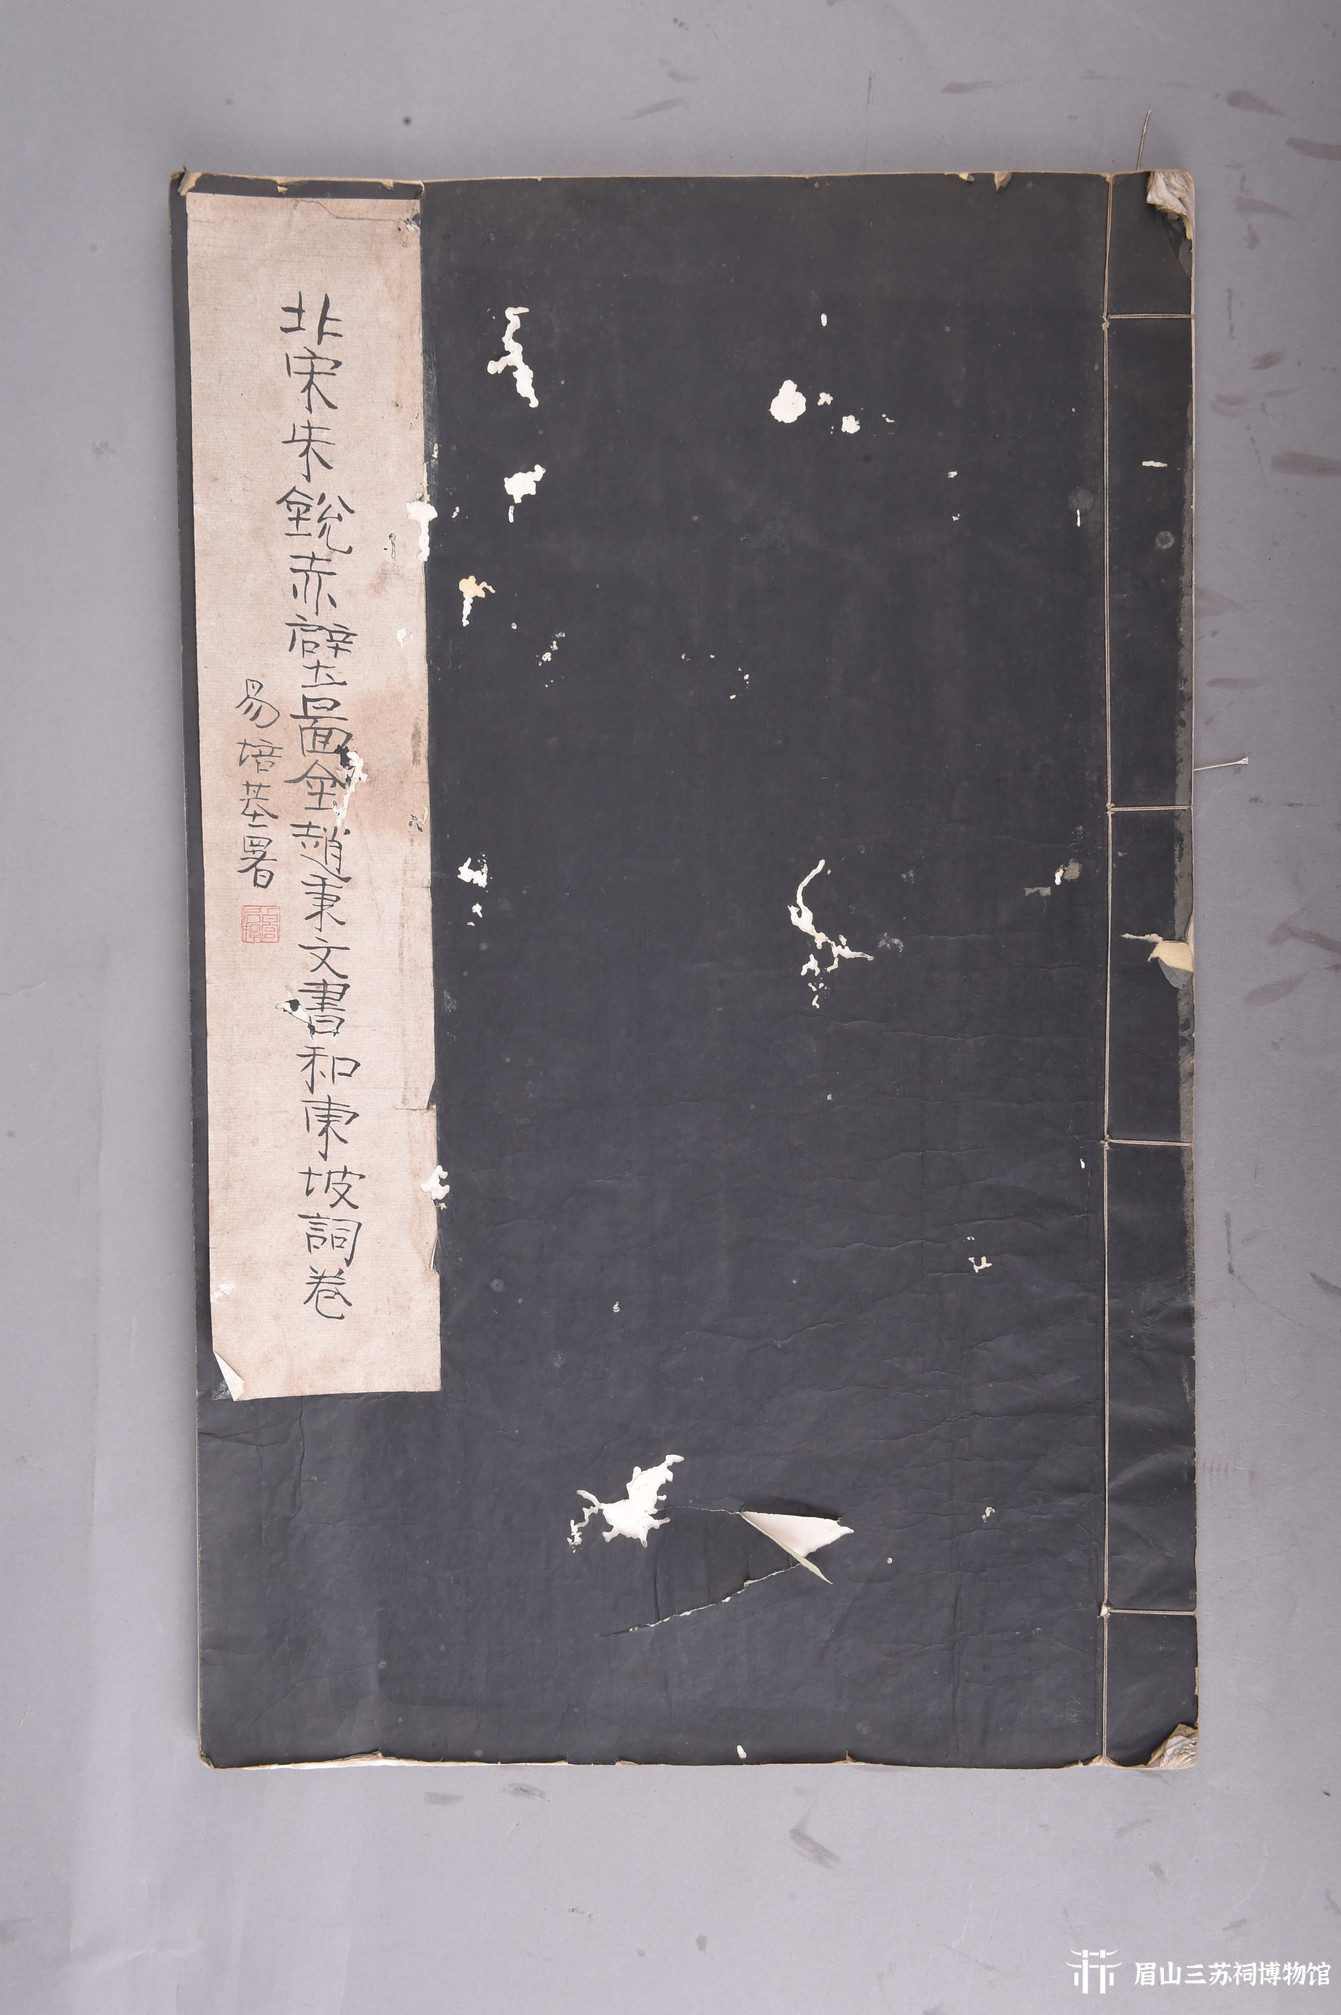 北宋朱銳赤壁啚金趙秉文書和東坡詞卷
易培基署
眉山三苏祠博物馆